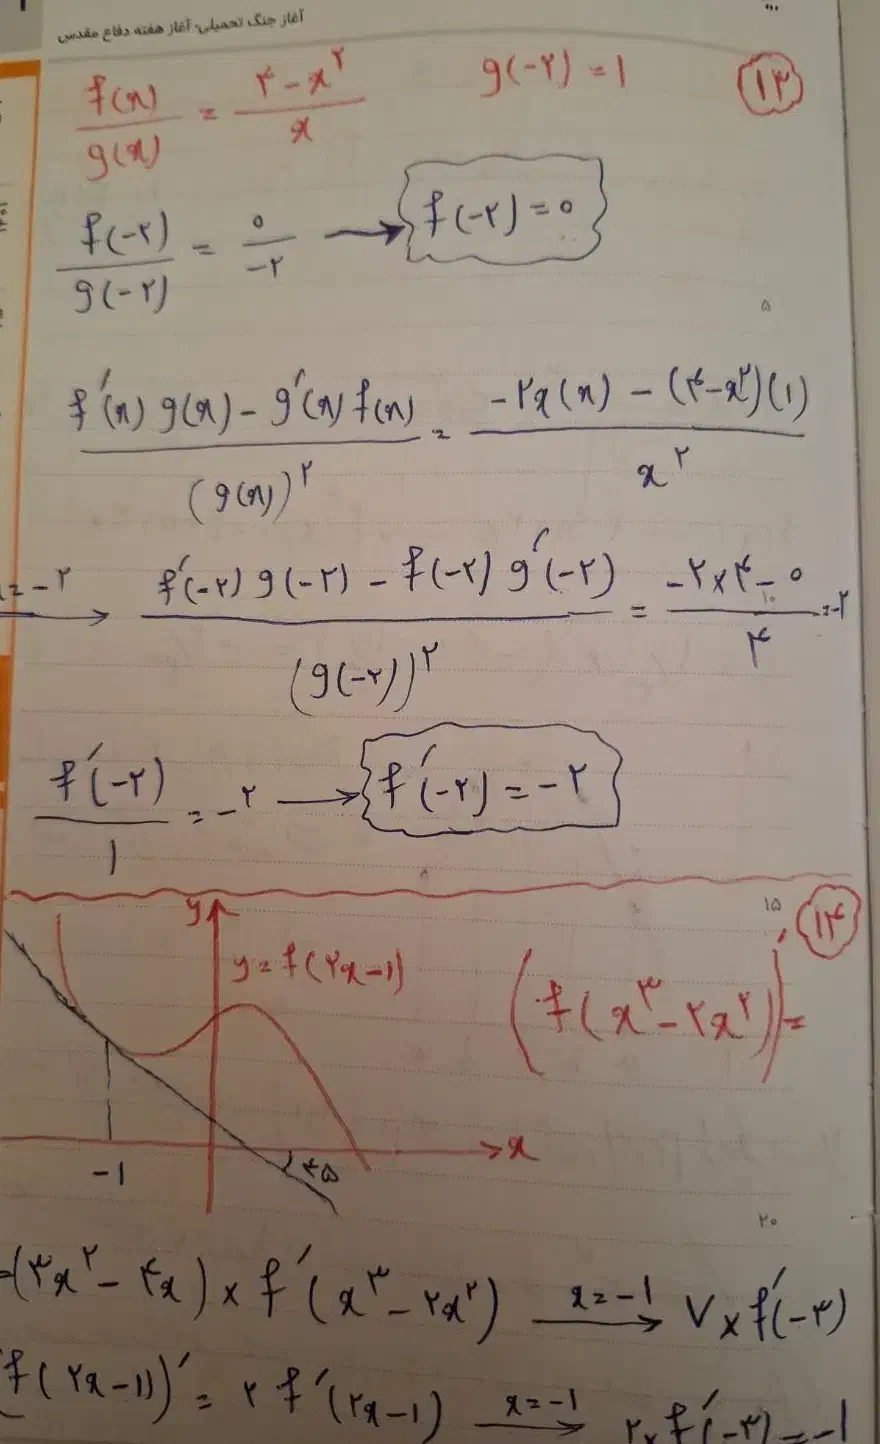 آغاز جنگ تحمیلی، آغاز هفته دفاع مقدس
۱۳
f(x)/g(x) = (۴ - x^۲)/x    g(-۲) = ۱
f(-۲)/g(-۲) = ۰/-۲ → f(-۲) = ۰
۵
(f'(x) g(x) - g'(x) f(x))/(g(x))^۲ = (-۲x(x) - (۴-x^۲)(۱))/x^۲
x = -۲ → (f'(-۲) g(-۲) - f(-۲) g'(-۲))/(g(-۲))^۲ = (-۲×۴ - ۰)/۴ = -۲
۱۰
f'(-۲)/۱ = -۲ → f'(-۲) = -۲
۱۵
۱۴
y
y = f(۲x-۱)
(f(x^۳ - ۲x^۲))' =
x
-۱
۴۵
۲۰
=(۳x^۲ - ۴x) × f'(x^۳ - ۲x^۲) x=-۱ → ۷ × f'(-۳)
f(۲x-۱))' = ۲ f'(۲x-۱) x=-۱ → ۲× f'(-۳) = -۱